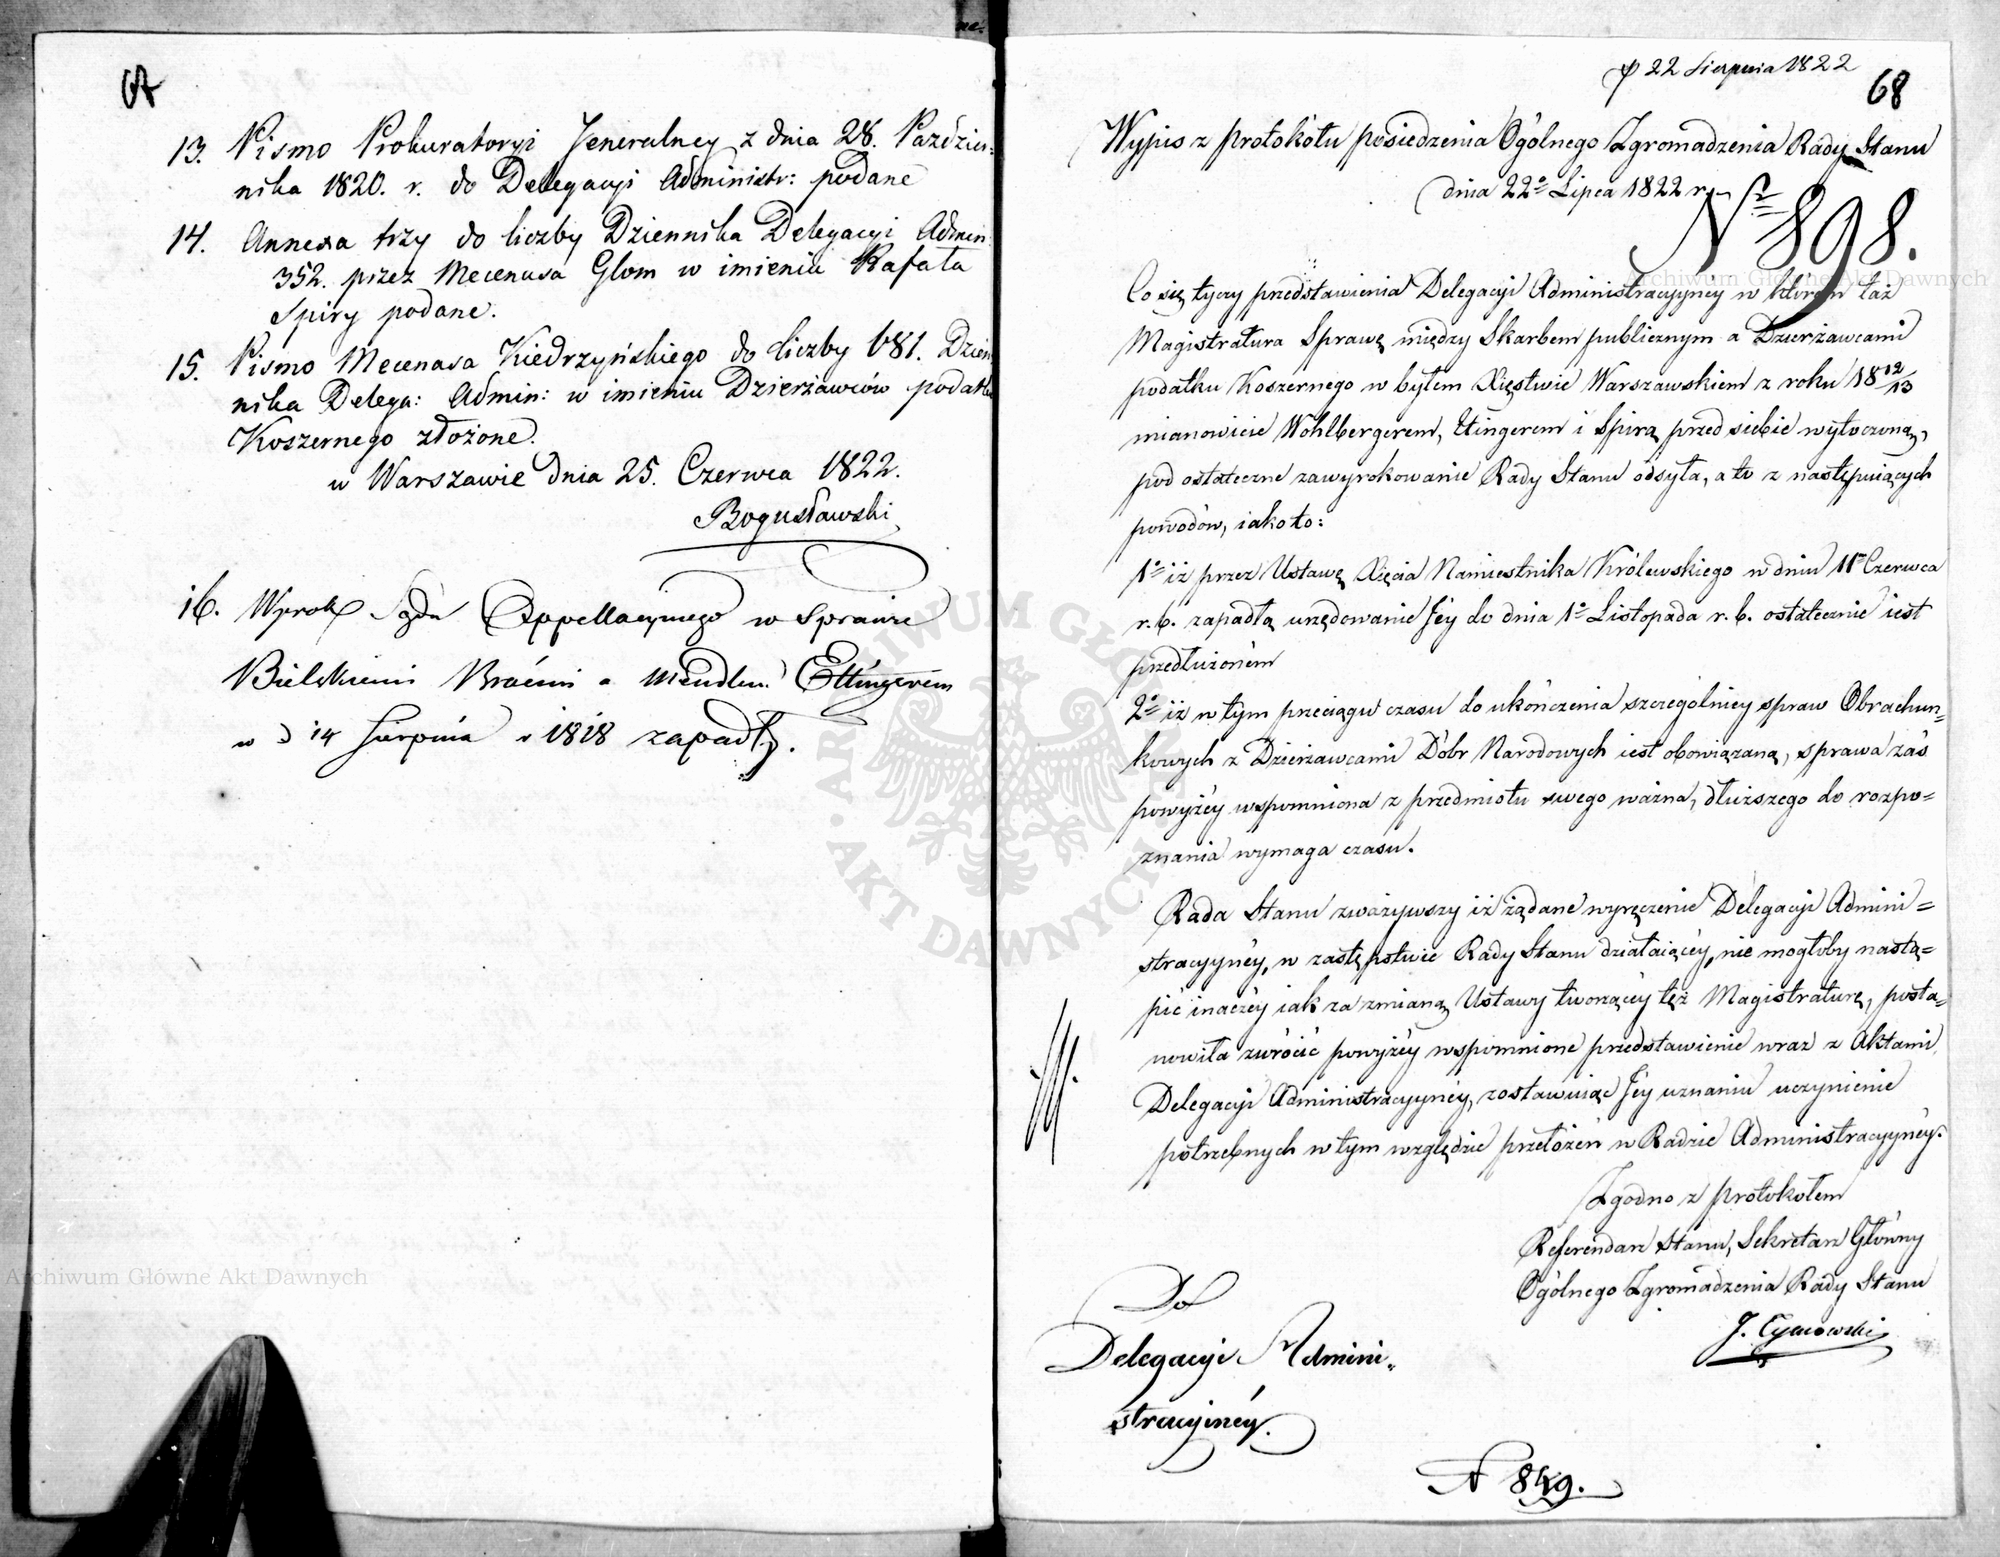 13. Pismo Prokuratoryi Jeneralney z dnia 28. Paździer:
nika 1820. r. do Delegacyi Administr: podane
14. Annexa trzy do liczby Dziennika Delegacyi Admin:
352. przez Mecenasa Glom w imieniu Rafała
Spiry podane.
15. Pismo Mecenasa Kiedrzyńskiego do liczby 681. Dzien
nika Delega: Admin: w imieniu Dzierżawców podatku
Koszernego złożone.
w Warszawie dnia 25. Czerwca 1822.
Bogusławski
16. Wyrok Sądu Appellacyinego w Sprawie
Bielskiemi Braćmi a Mendlem Ettingerem
w d 14 Sierpnia r 1818 zapadły.
22 Sierpnia 1822
68
Wypis z protokółu posiedzenia Ogólnego Zgromadzenia Rady Stanu
dnia 22o Lipca 1822 r.
Nr 898.
Co się tyczy przedstawienia Delegacyi Administracyyney w którem taż
Magistratura Sprawę między Skarbem publicznym a Dzierżawcami
podatku Koszernego w byłem Xięstwie Warszawskiem z roku 18 12/13
mianowicie Wohlbergerem, Etingerem i Spirą przed siebie wytoczoną,
pod ostateczne zawyrokowanie Rady Stanu odsyła, a to z następuiących
powodów, iako to:
1o iż przez Ustawę Xięcia Namiestnika Królewskiego w dniu 11m Czerwca
r. b. zapadłą urzędowanie Jéy do dnia 1o Listopada r. b. ostatecznie iest
przedłużoném
2o iż w tym przeciągu czasu do ukończenia szczególniey spraw Obrachun=
kowych z Dzierżawcami Dóbr Narodowych iest obowiązaną, sprawa zaś
powyżéy wspomniona z przedmiotu swego ważna, dłuższego do rozpo=
znania wymaga czasu.
Rada Stanu zważywszy iż żądane wyręczenie Delegacyi Admini=
stracyynéy, w zastępstwie Rady Stanu działaiącéy, nie mogłoby nastą=
pić inaczéy iak za zmianą Ustawy tworzącéy też Magistraturę, posta=
nowiła zwrócić powyżéy wspomnione przedstawienie wraz z Aktami
Delegacyi Administracyynéy, zostawuiąc Jéy uznaniu uczynienie
potrzebnych w tym względzie przełożeń w Radzie Administracyynéy.
Zgodno z protokołem
Referendarz Stanu, Sekretarz Główny
Ogólnego Zgromadzenia Rady Stanu
Do
Delegacyi Admini=
stracyinéy.
N 849.
Archiwum Główne Akt Dawnych
Archiwum Główne Akt Dawnych
ARCHIWUM GŁÓWNE · AKT DAWNYCH